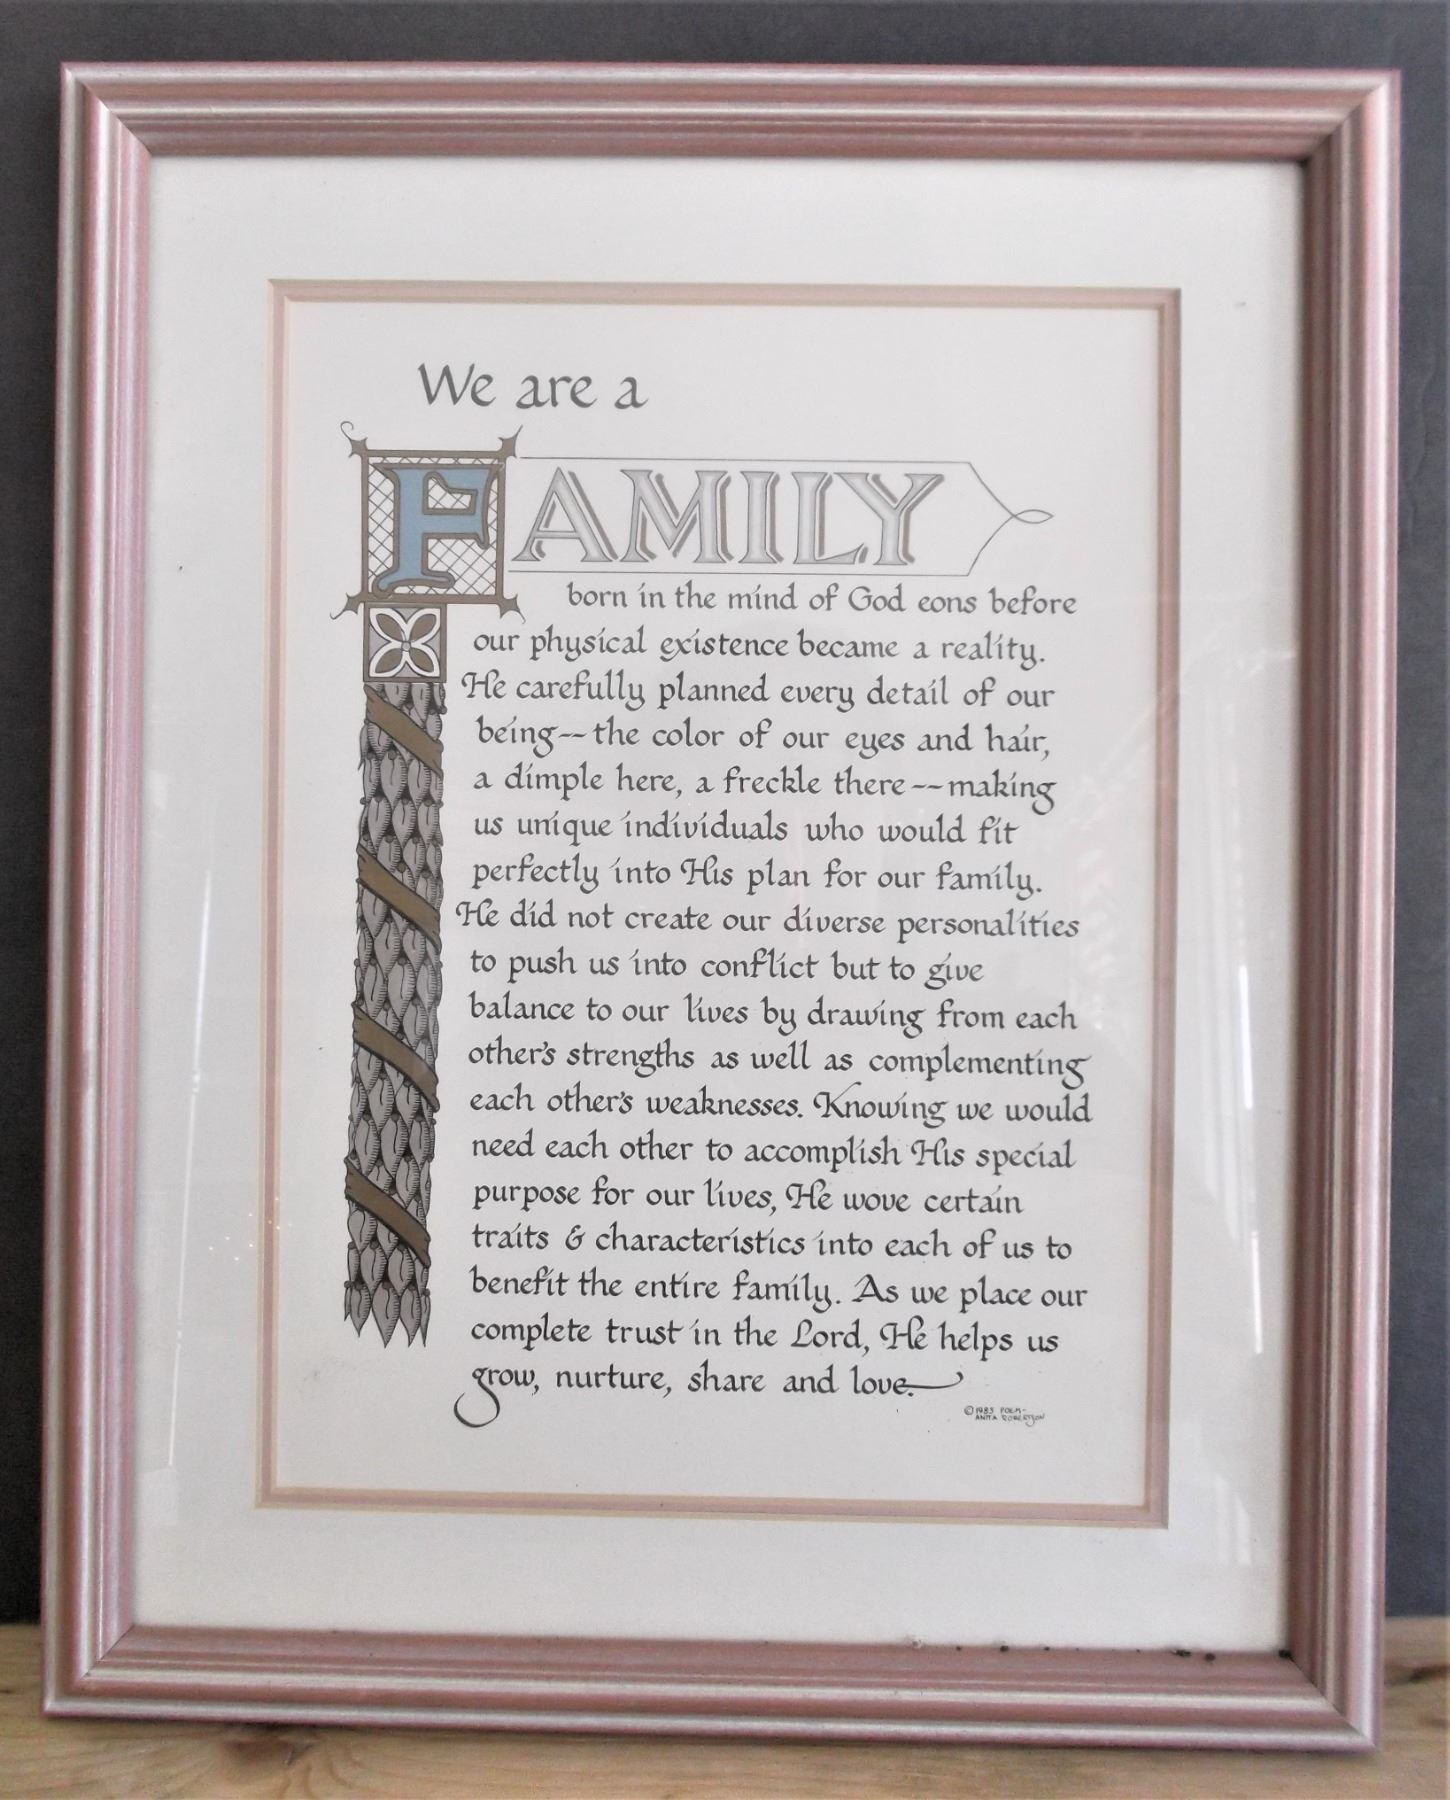 We are a
FAMILY
born in the mind of God eons before
our physical existence became a reality.
He carefully planned every detail of our
being--the color of our eyes and hair,
a dimple here, a freckle there--making
us unique individuals who would fit
perfectly into His plan for our family.
He did not create our diverse personalities
to push us into conflict but to give
balance to our lives by drawing from each
other's strengths as well as complementing
each other's weaknesses. Knowing we would
need each other to accomplish His special
purpose for our lives, He wove certain
traits & characteristics into each of us to
benefit the entire family. As we place our
complete trust in the Lord, He helps us
grow, nurture, share and love.
© 1983 POEM-
ANITA ROBERTSON